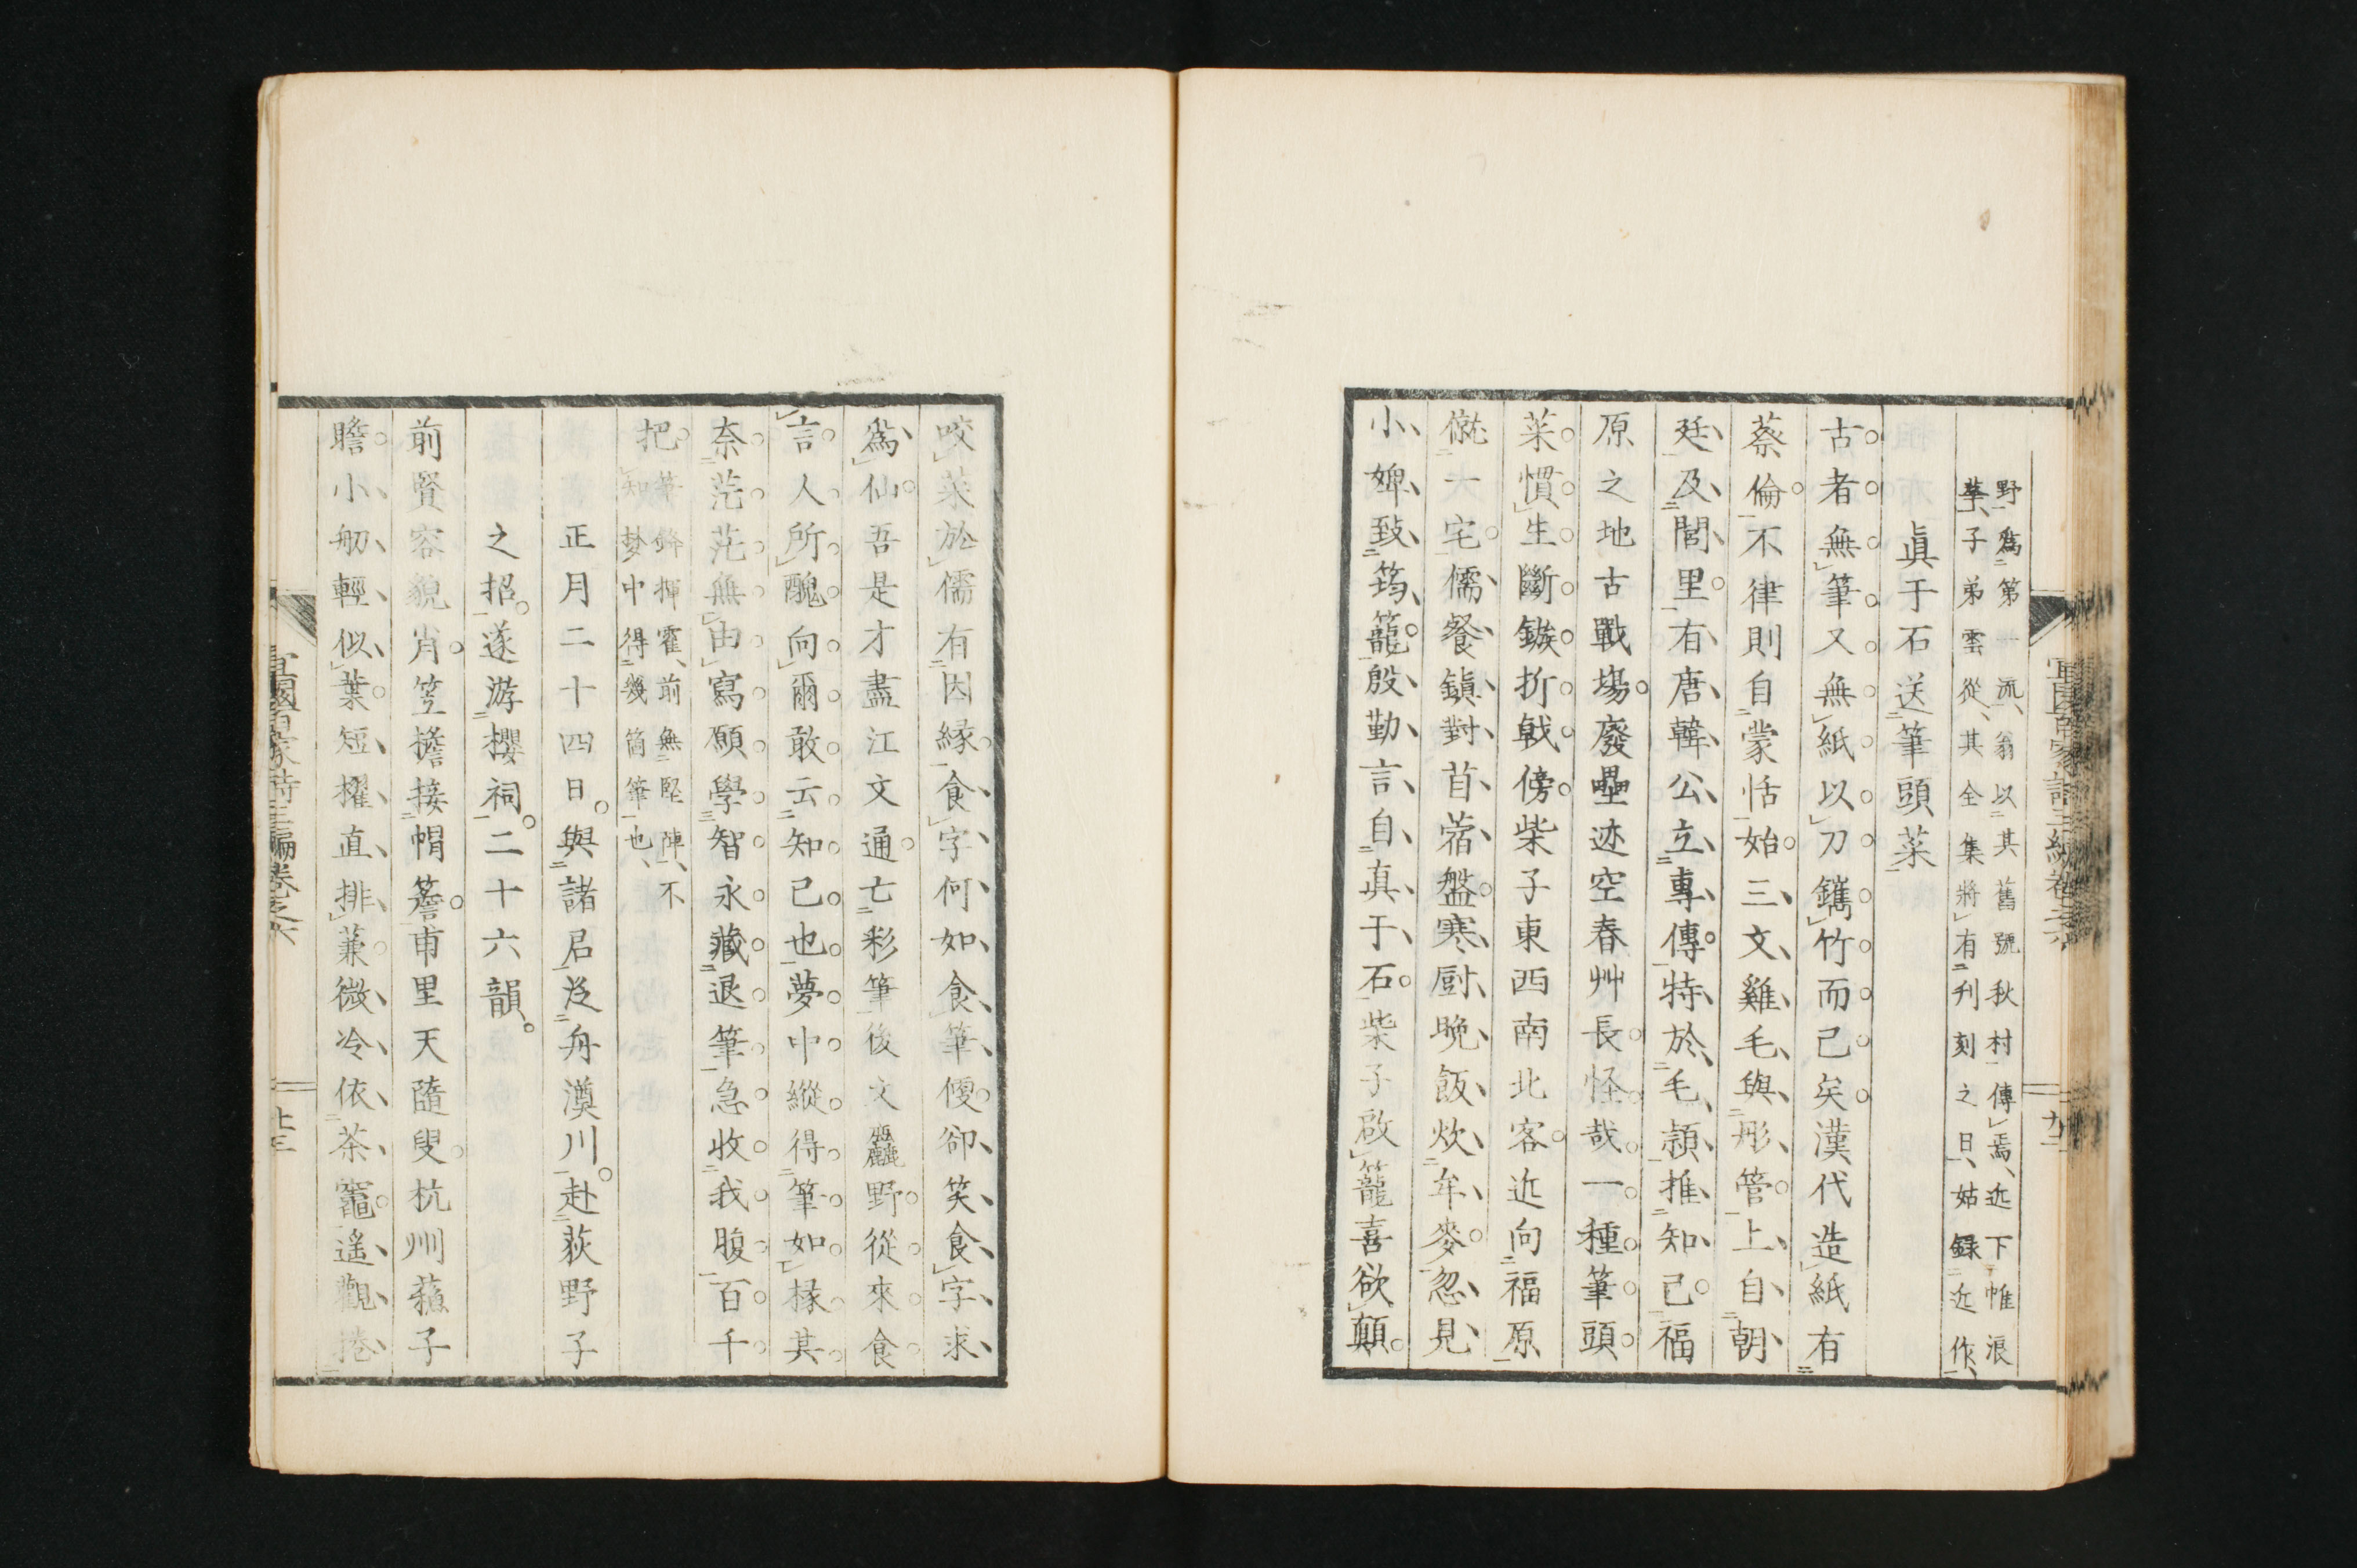 野爲第一流、翁以其舊號秋村傳焉、近下帷浪
華、子弟雲從、其全集將有刋刻之日、姑録近作、
眞于石送筆頭菜
古者無筆又無紙以刀鐫竹而已矣漢代造紙有
蔡倫不律則自蒙恬始三文雞毛與彤管上自朝
廷及閭里有唐韓公立專傳特於毛頴推知己福
原之地古戰塲廢壘迹空春艸長怪哉一種筆頭
菜慣生斷鏃折戟傍柴子東西南北客近向福原
僦一宅儒餐鎭對苜蓿盤寒厨晩飯炊牟麥忽見
小婢致筠籠殷勤言自真于石柴子啟籠喜欲顛
咬菜於儒有因縁食字何如食筆便卻笑食字求
爲仙吾是才盡江文通亡彩筆後文麤野從來食
言人所醜向爾敢云知己也夢中縱得筆如椽其
奈茫茫無由寫願學智永藏退筆急收我腹百千
把筆鋒揮霍、前無堅陣、不
知夢中得幾箇筆也、
正月二十四日。與諸君泛舟澳川。赴荻野子
之招。遂游櫻祠。二十六韻。
前賢容貌肖笠檐接帽簷甫里天隨叟杭州蘓子
瞻小舠輕似葉短櫂直排蒹微冷依茶竈遥觀捲
廿三